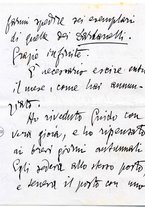 farmi spedire sei esemplari
di quelle dei Dardanelli.
Grazie infinite.
È necessario escire entro
il mese, come hai annun-
ziato.
Ho riveduto Guido con
vera gioia, e ho ripensato
ai brevi giorni autunnali
Egli sedeva allo stesso posto,
e teneva il posto con uno